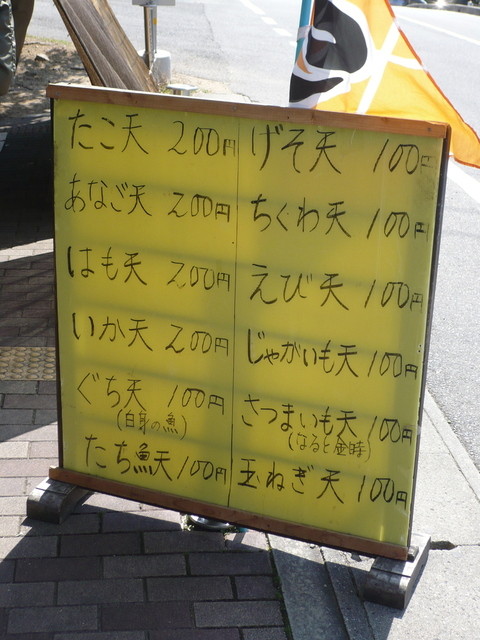 たこ天 200円
あなご天 200円
はも天 200円
いか天 200円
ぐち天 100円
(白身の魚)
たち魚天 100円
げそ天 100円
ちくわ天 100円
えび天 100円
じゃがいも天 100円
さつまいも天 100円
(なると金時)
玉ねぎ天 100円